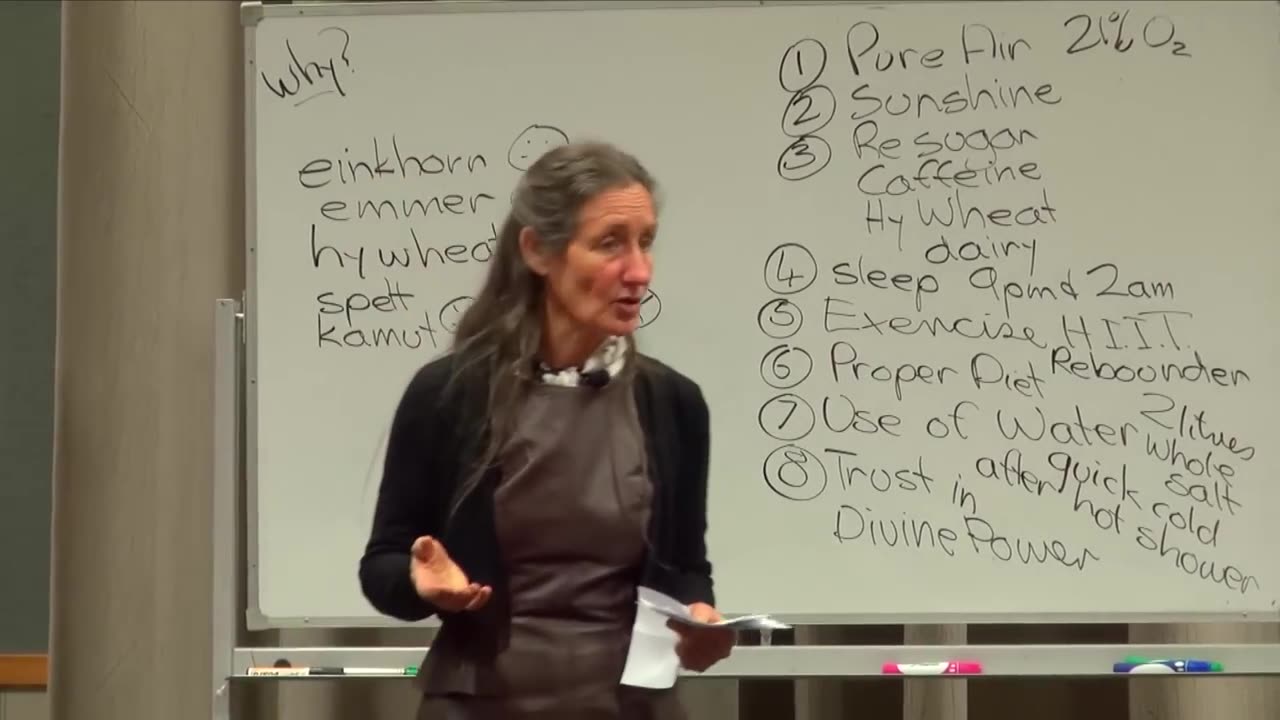 Why?
einkhorn
emmer
hy wheat
spelt
kamut
① Pure Air 21% O₂
② Sunshine
③ Re sugar
Caffeine
Hy Wheat
dairy
④ sleep 9pm & 2am
⑤ Exercise H.I.I.T.
Rebounder
⑥ Proper Diet
⑦ Use of Water 2 litres
whole
salt
quick cold
after hot shower
⑧ Trust in
Divine Power